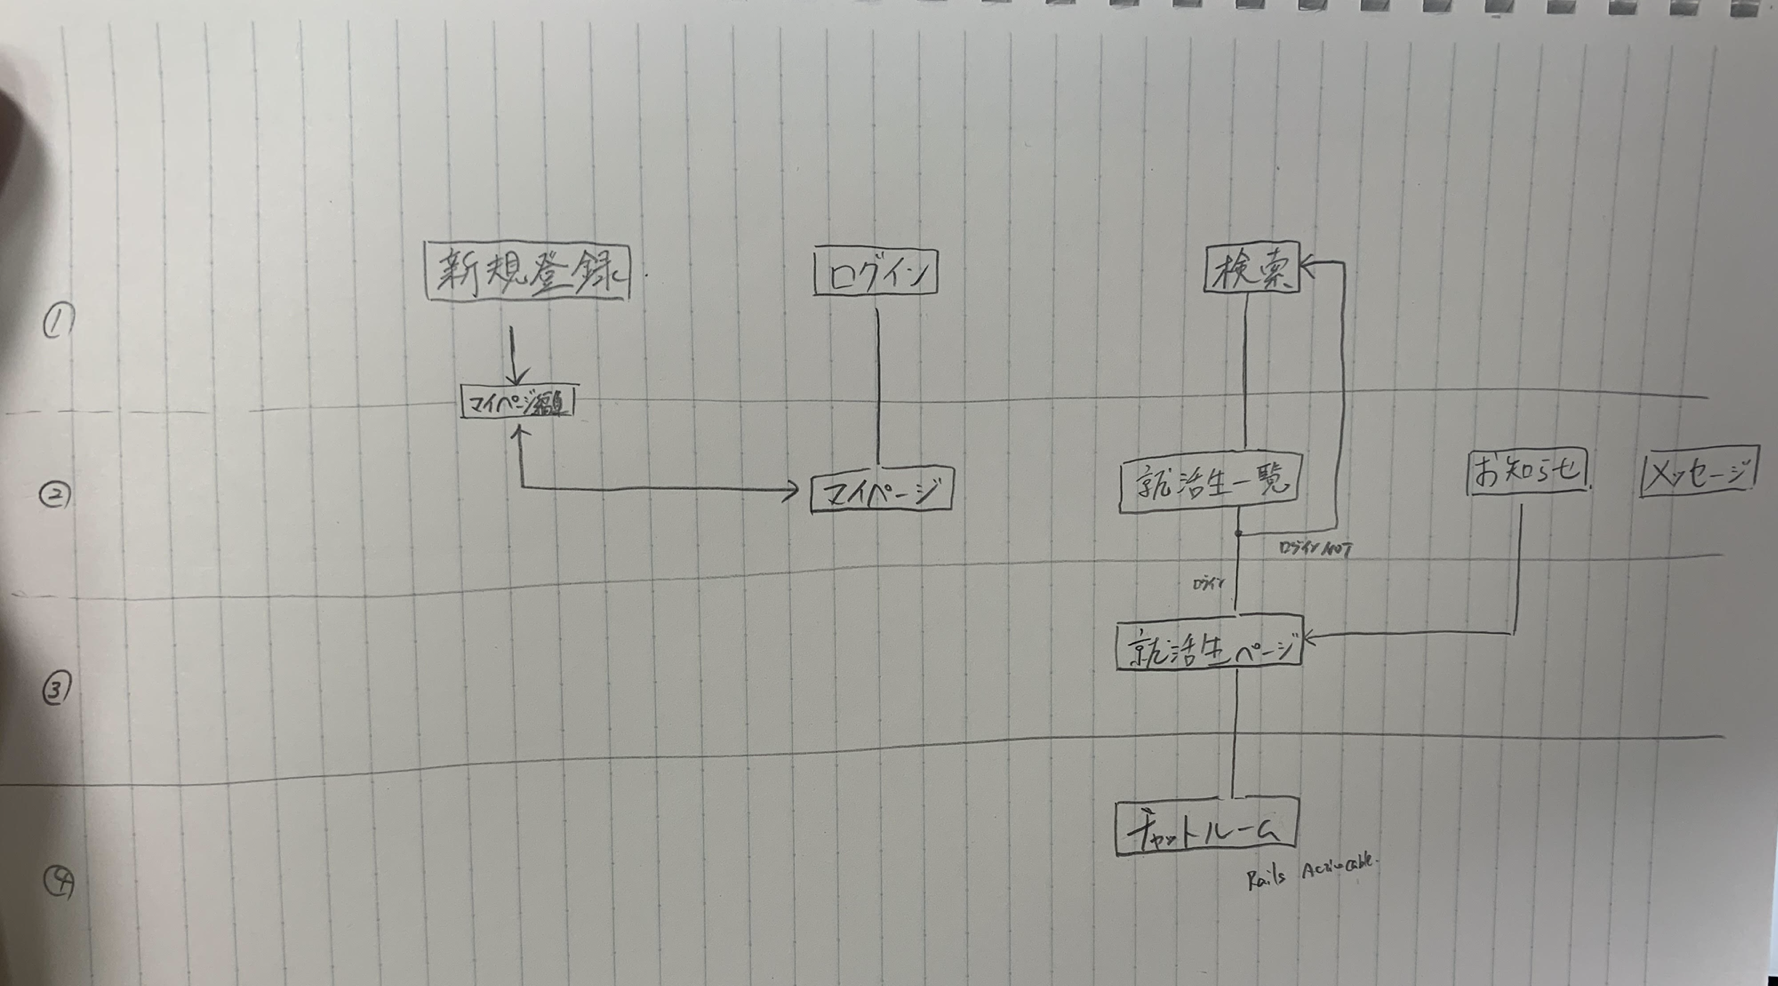 ①
新規登録
ログイン
検索
マイページ編集
②
マイページ
就活生一覧
お知らせ
メッセージ
ログインNOT
ログイン
③
就活生ページ
④
チャットルーム
Rails Actioncable.